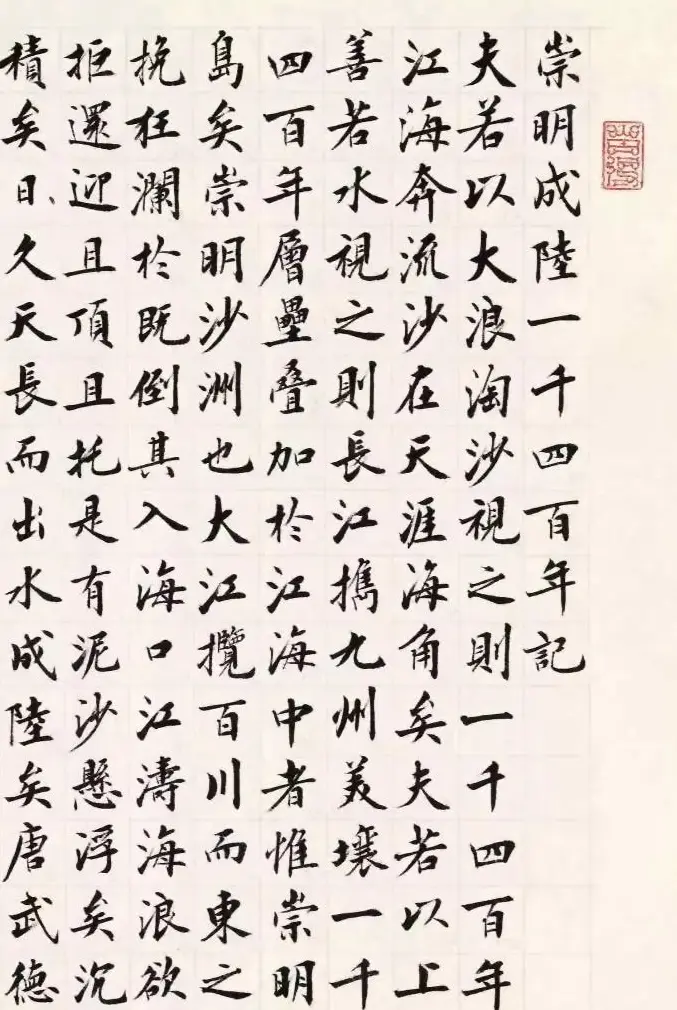 崇明成陸一千四百年記
夫若以大浪淘沙視之則一千四百年
江海奔流沙在天涯海角矣夫若以上
善若水視之則長江擕九州美壤一千
四百年層壘叠加於江海中者惟崇明
島矣崇明沙洲也大江攬百川而東之
挽狂瀾於既倒其入海口江濤海浪欲
拒還迎且頂且托是有泥沙懸浮矣沉
積矣日久天長而出水成陸矣唐武德